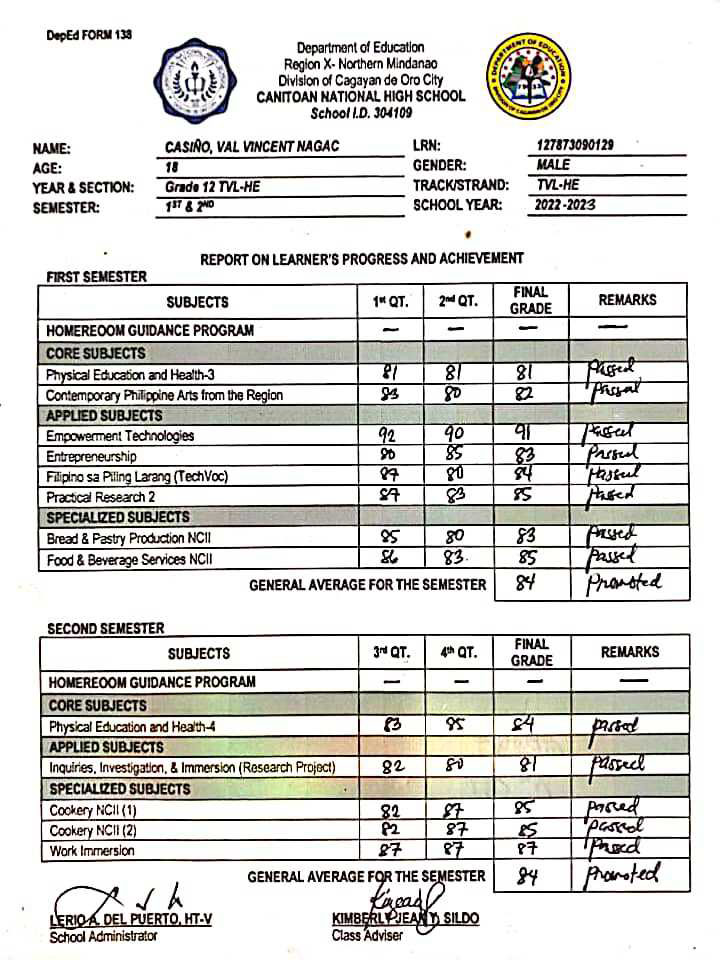 DepEd FORM 138
Department of Education
Region X- Northern Mindanao
Division of Cagayan de Oro City
CANITOAN NATIONAL HIGH SCHOOL
School I.D. 304109
DEPARTMENT OF EDUCATION
DIVISION OF CAGAYAN DE ORO CITY
NAME: CASIÑO, VAL VINCENT NAGAC LRN: 127873090129
AGE: 18 GENDER: MALE
YEAR & SECTION: Grade 12 TVL-HE TRACK/STRAND: TVL-HE
SEMESTER: 1ST & 2ND SCHOOL YEAR: 2022-2023
REPORT ON LEARNER'S PROGRESS AND ACHIEVEMENT
FIRST SEMESTER
SUBJECTS 1st QT. 2nd QT. FINAL GRADE REMARKS
HOMEREOOM GUIDANCE PROGRAM — — — —
CORE SUBJECTS
Physical Education and Health-3 81 81 81 Passed
Contemporary Philippine Arts from the Region 83 80 82 Passed
APPLIED SUBJECTS
Empowerment Technologies 92 90 91 Passed
Entrepreneurship 80 85 83 Passed
Filipino sa Piling Larang (TechVoc) 87 80 84 Passed
Practical Research 2 87 83 85 Passed
SPECIALIZED SUBJECTS
Bread & Pastry Production NCII 85 80 83 Passed
Food & Beverage Services NCII 86 83 85 Passed
GENERAL AVERAGE FOR THE SEMESTER 84 Promoted
SECOND SEMESTER
SUBJECTS 3rd QT. 4th QT. FINAL GRADE REMARKS
HOMEREOOM GUIDANCE PROGRAM — — — —
CORE SUBJECTS
Physical Education and Health-4 83 85 84 passed
APPLIED SUBJECTS
Inquiries, Investigation, & Immersion (Research Project) 82 80 81 passed
SPECIALIZED SUBJECTS
Cookery NCII (1) 82 87 85 passed
Cookery NCII (2) 82 87 85 passed
Work Immersion 87 87 87 passed
GENERAL AVERAGE FOR THE SEMESTER 84 Promoted
LERIO A. DEL PUERTO, HT-V KIMBERLY JEAN Y. SILDO
School Administrator Class Adviser